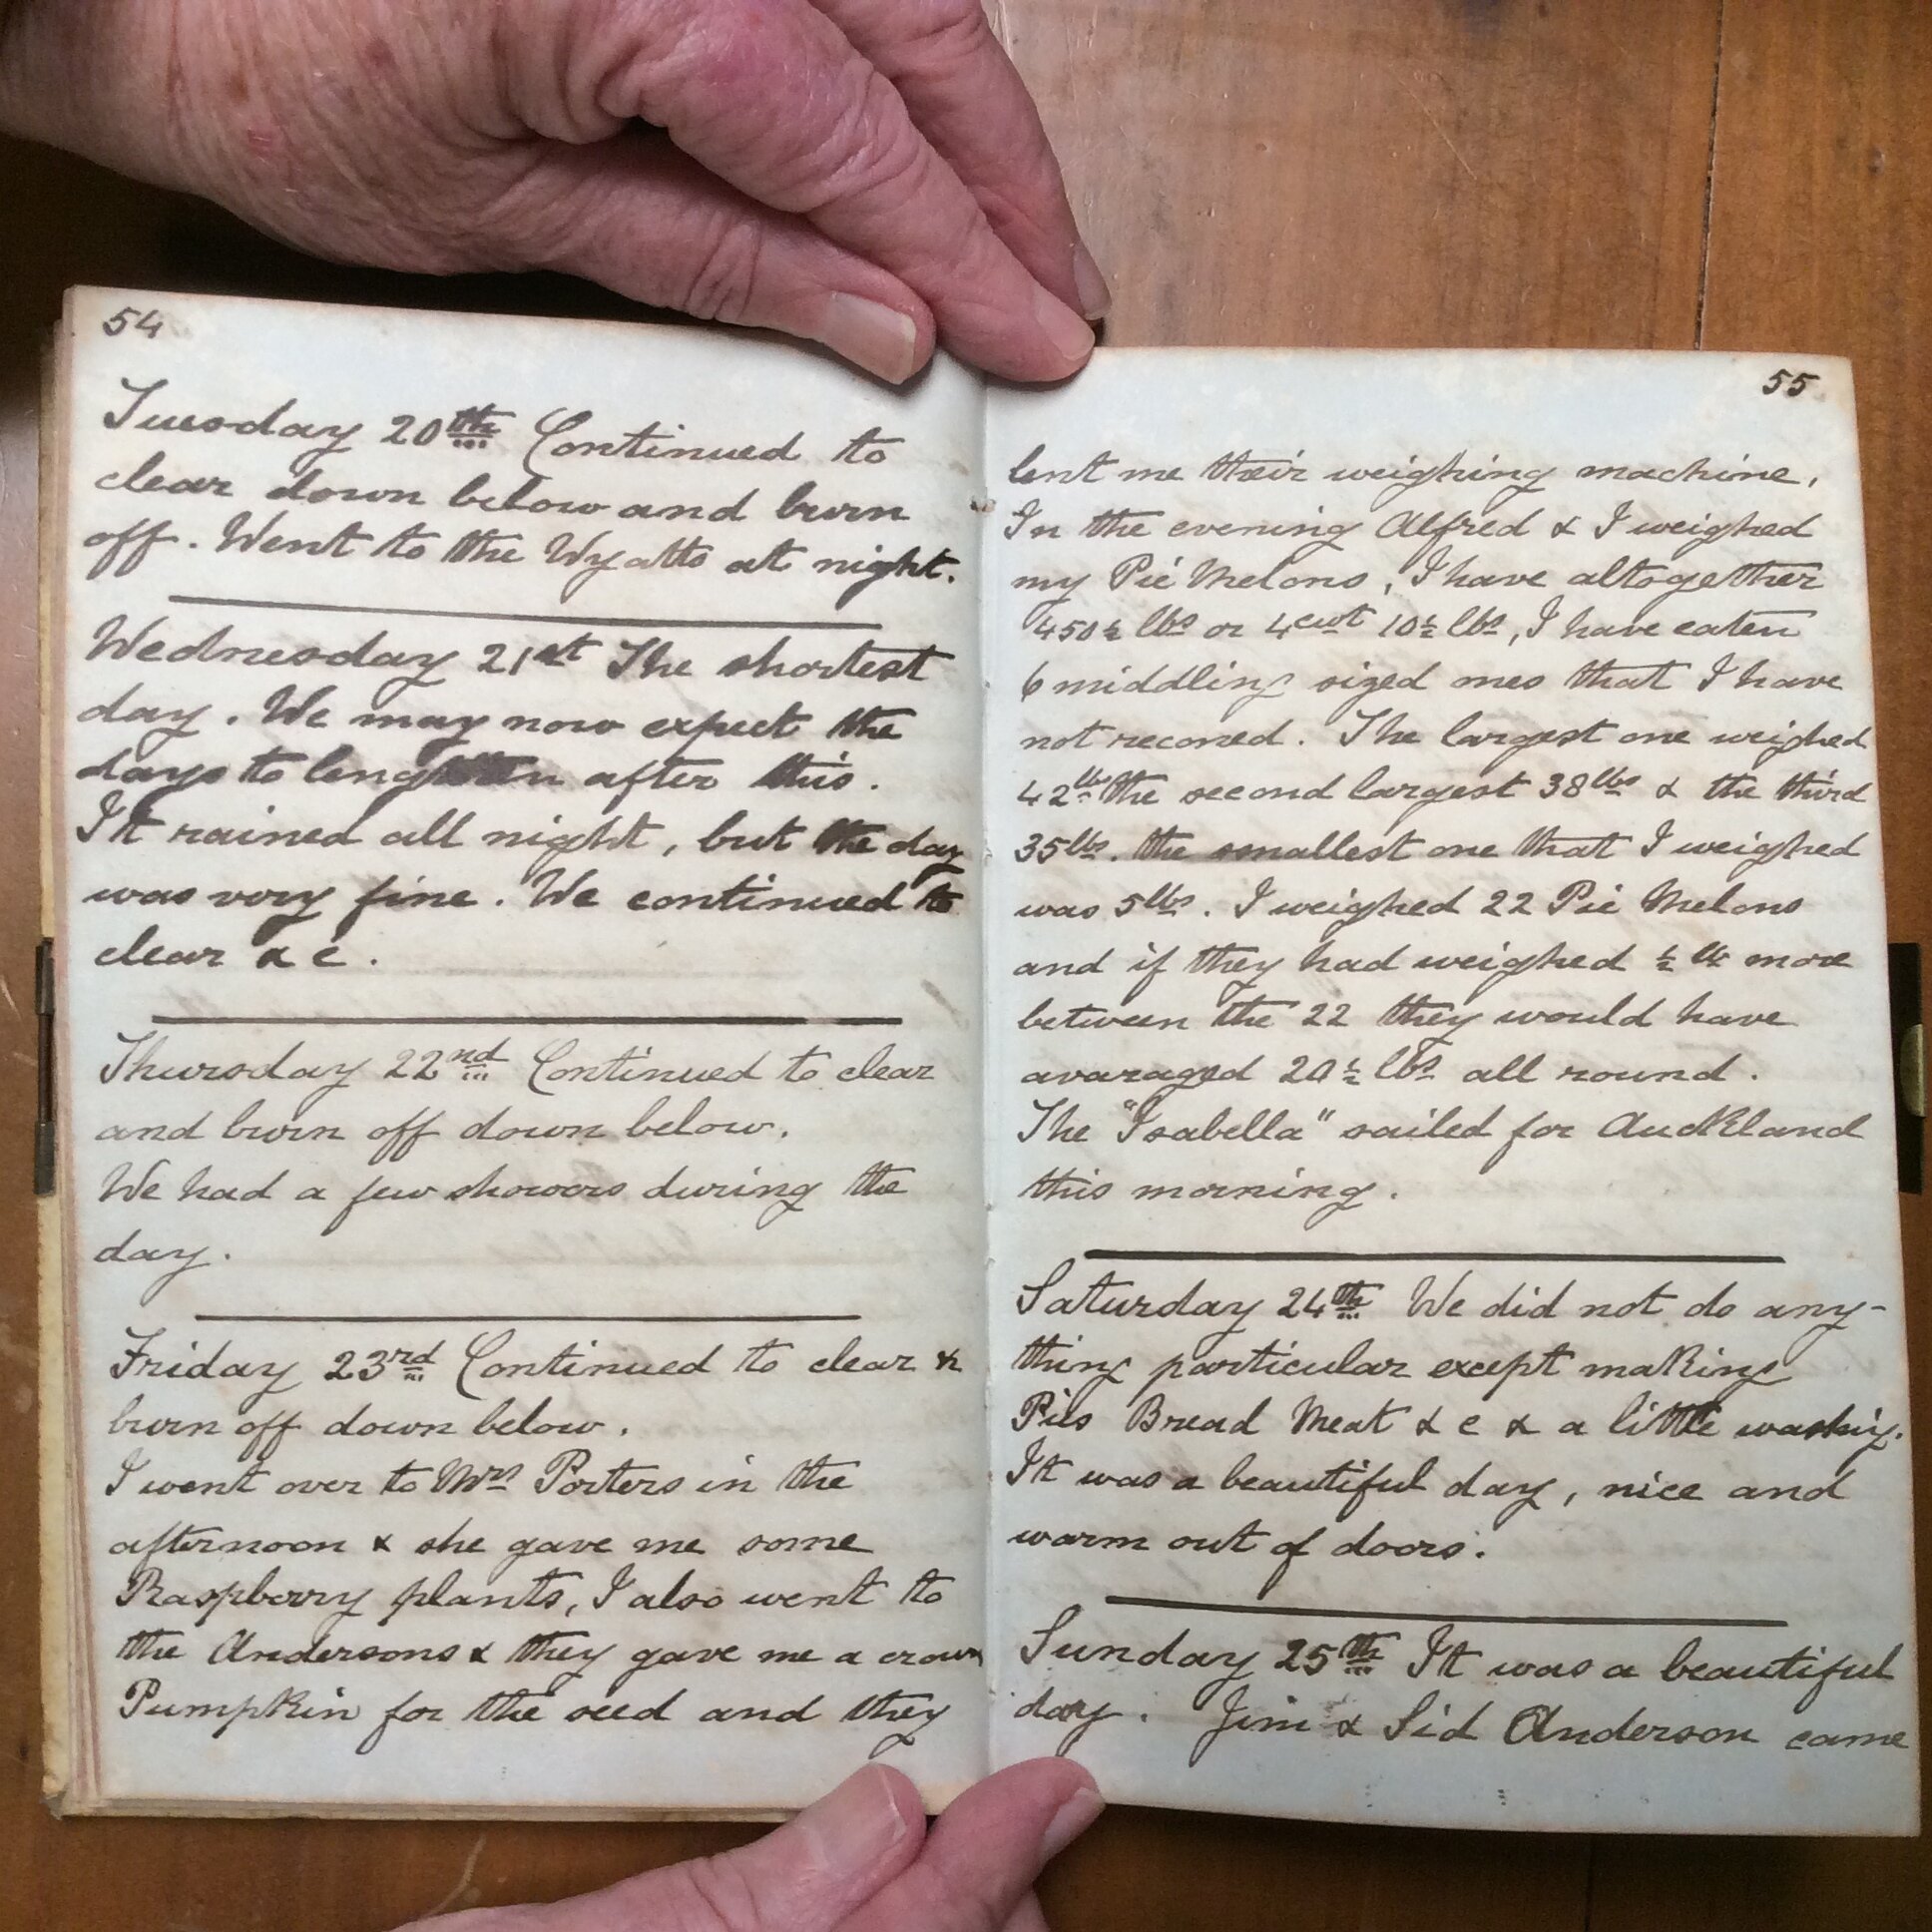 54
Tuesday 20th Continued to
clear down below and burn
off. Went to the Wyatts at night.
Wednesday 21st The shortest
day. We may now expect the
days to lengthen after this.
It rained all night, but the day
was very fine. We continued to
clear & c.
Thursday 22nd Continued to clear
and burn off down below.
We had a few showers during the
day.
Friday 23rd Continued to clear &
burn off down below.
I went over to Mrs Porters in the
afternoon & she gave me some
Raspberry plants, I also went to
the Andersons & they gave me a crown
Pumpkin for the seed and they
55
lent me their weighing machine,
In the evening Alfred & I weighed
my Pie Melons, I have altogether
450½ lbs or 4cwt 10½ lbs, I have eaten
6 middling sized ones that I have
not reconed. The largest one weighed
42lbs the second largest 38lbs & the third
35lbs. the smallest one that I weighed
was 5lbs. I weighed 22 Pie Melons
and if they had weighed ½ lb more
between the 22 they would have
avaraged 20½ lbs all round.
The "Isabella" sailed for Auckland
this morning.
Saturday 24th We did not do any-
thing particular except making
Pies Bread Meat & c & a little washing.
It was a beautiful day, nice and
warm out of doors.
Sunday 25th It was a beautiful
day. Jim & Sid Anderson came